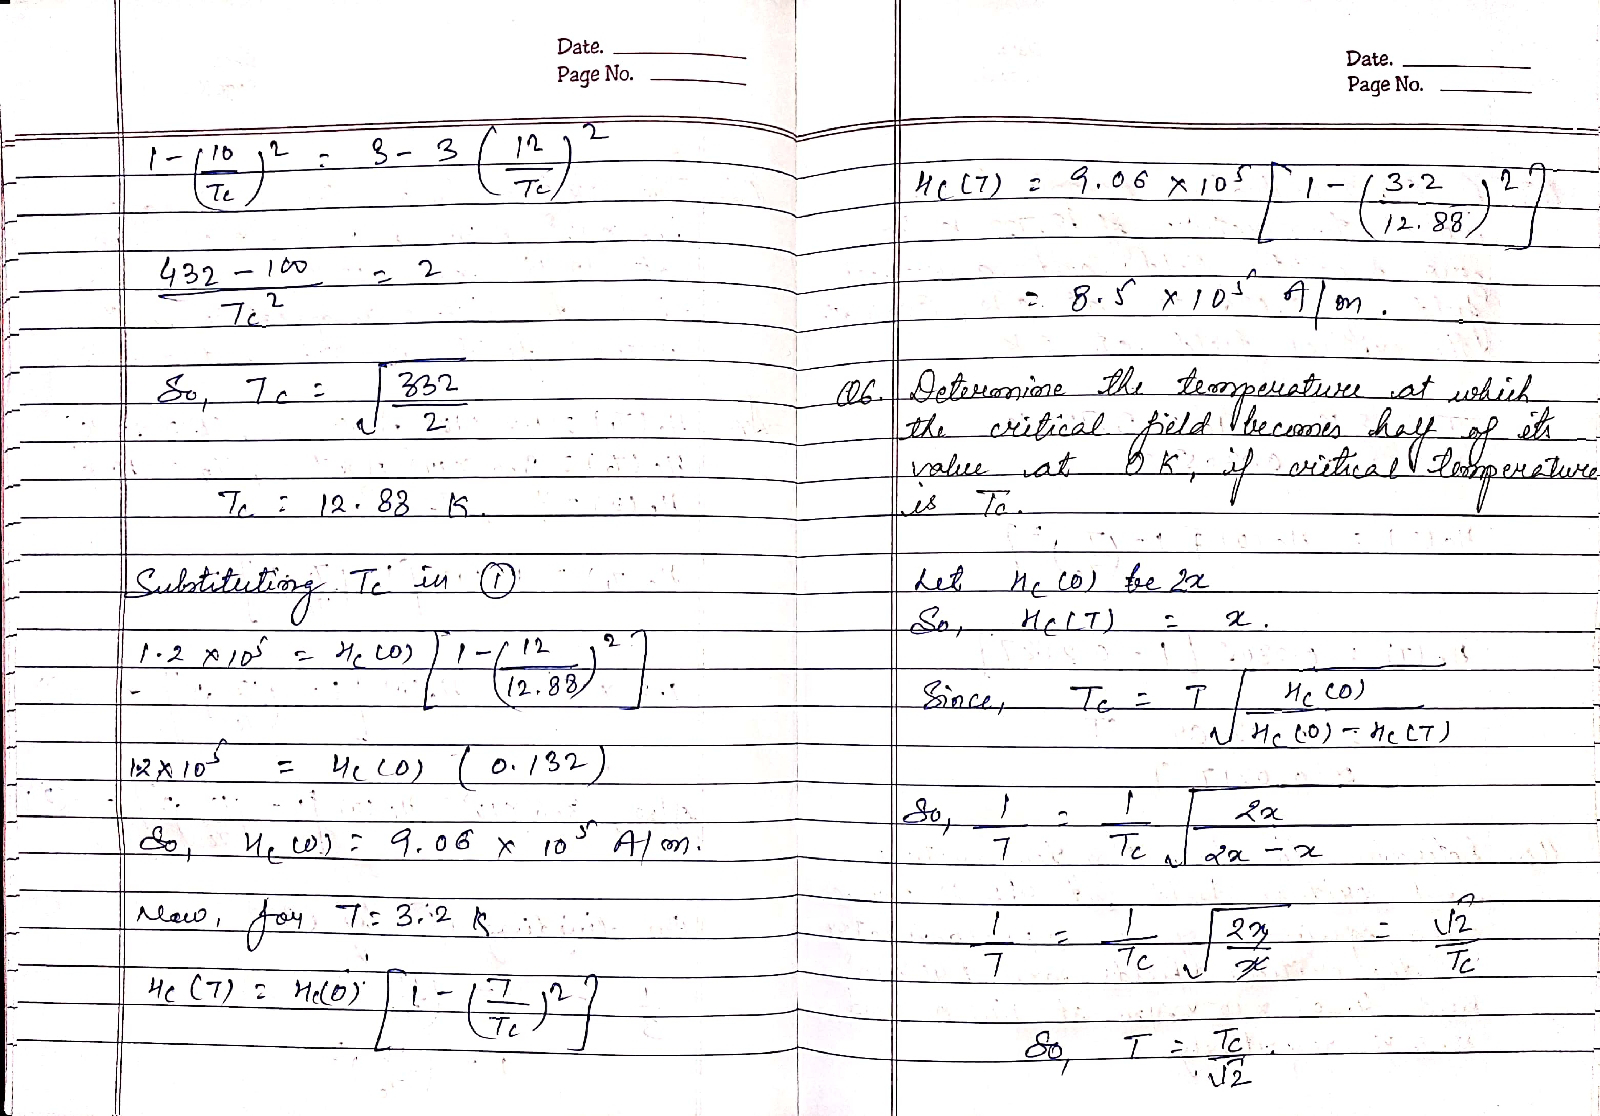 Date.
Page No.
1 - (10/Tc)² = 3 - 3 (12/Tc)²
(432 - 100)/Tc² = 2
So, Tc = √(332/2)
Tc = 12.88 K.
Substituting Tc in ①
1.2 × 10⁵ = Hc(0) [1 - (12/12.88)²]
12 × 10⁵ = Hc(0) (0.132)
So, Hc(0) = 9.06 × 10⁵ A/m.
Now, for T = 3.2 K
Hc(T) = Hc(0) [1 - (T/Tc)²]
Date.
Page No.
Hc(T) = 9.06 × 10⁵ [1 - (3.2/12.88)²]
= 8.5 × 10⁵ A/m.
Q6. Determine the temperature at which
the critical field becomes half of its
value at 0 K, if critical temperature
is Tc.
Let Hc(0) be 2x
So, Hc(T) = x.
Since, Tc = T √(Hc(0)/(Hc(0) - Hc(T)))
So, 1/T = 1/Tc √(2x/(2x - x))
1/T = 1/Tc √(2x/x) = √2/Tc
So, T = Tc/√2.